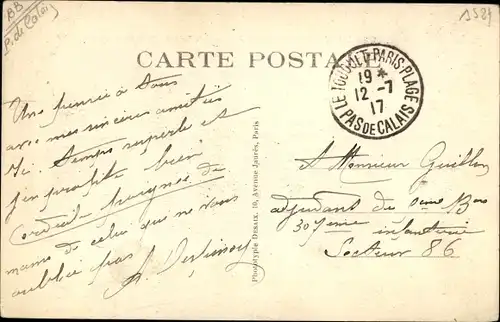 BB
P. de Calais
1587
CARTE POSTALE
LE TOUQUET-PARIS-PLAGE
19 *
12 - 7
17
PAS DE CALAIS
Une pensée à tous
avec mes sincères amitiés
Ici Temps superbe et
j'en profite bien
Cordiale poignée de
mains de celui qui ne vous
oublie pas
Phototypie Desaix, 10, Avenue Jaurès, Paris
A Monsieur Guillon
adjudant de Bon
307ème infanterie
Secteur 86